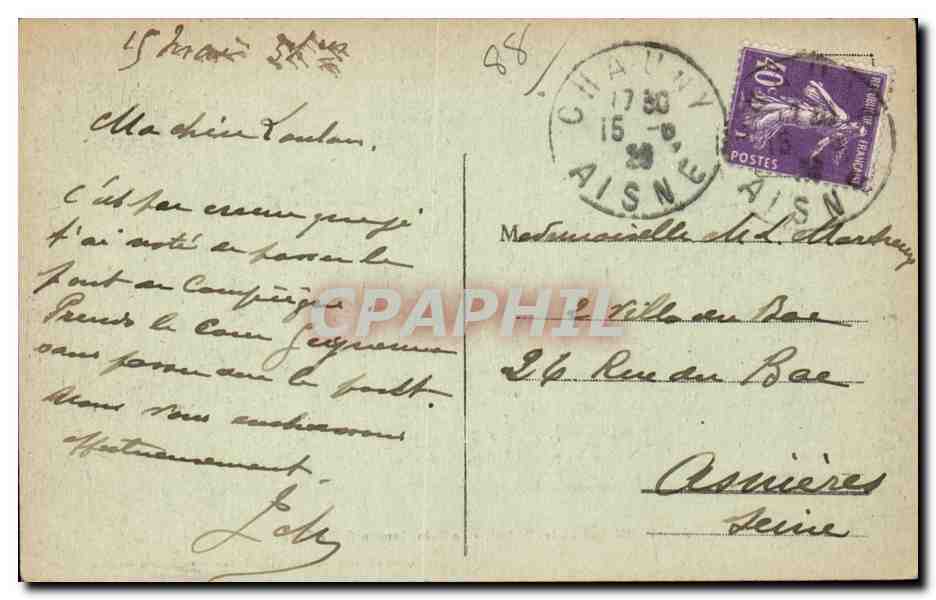 15 Mai
88
CHAUNY
17 30
15 -8
AISNE
40c
REPUBLIQUE FRANCAISE
POSTES
AISNE
Ma chère Loulou,
C'est par erreur que j'ai
t'ai noté de passer le
pont de Compiègne
Prends le Cours Guynemer
sans passer sur le pont.
Nous vous embrassons
affectueusement.
Mademoiselle M.L.
2 Villa du Bac
26 Rue du Bac
Asnières
Seine
CPAPHIL